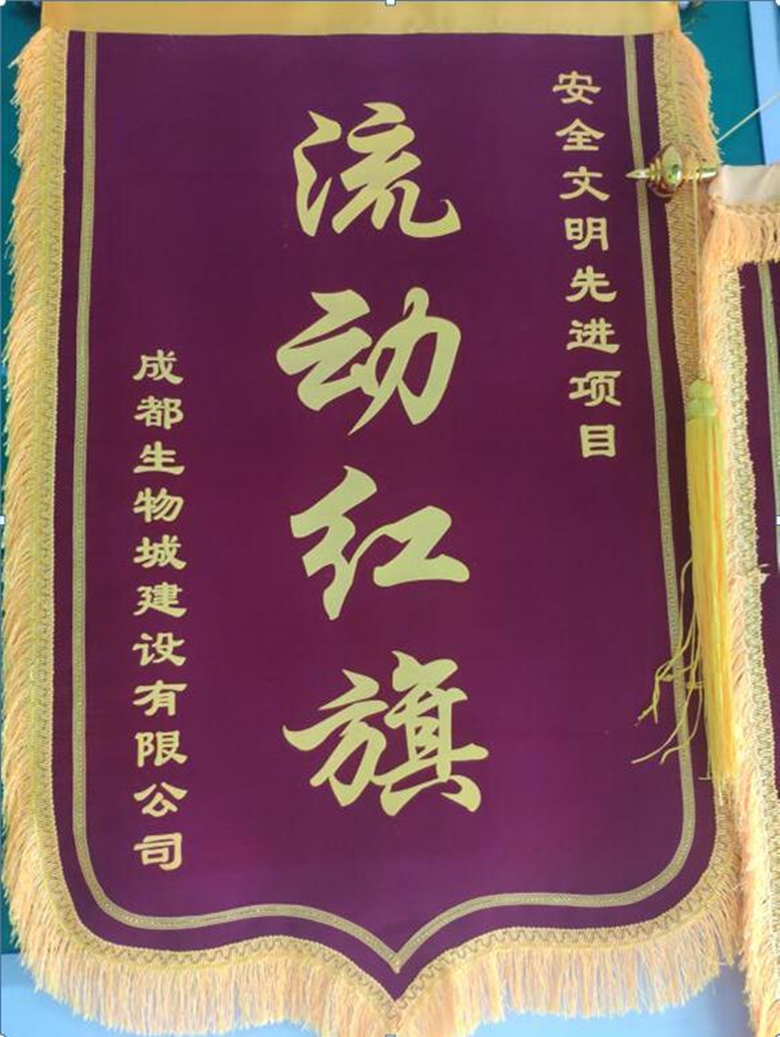 安全文明先进项目
流动红旗
成都生物城建设有限公司